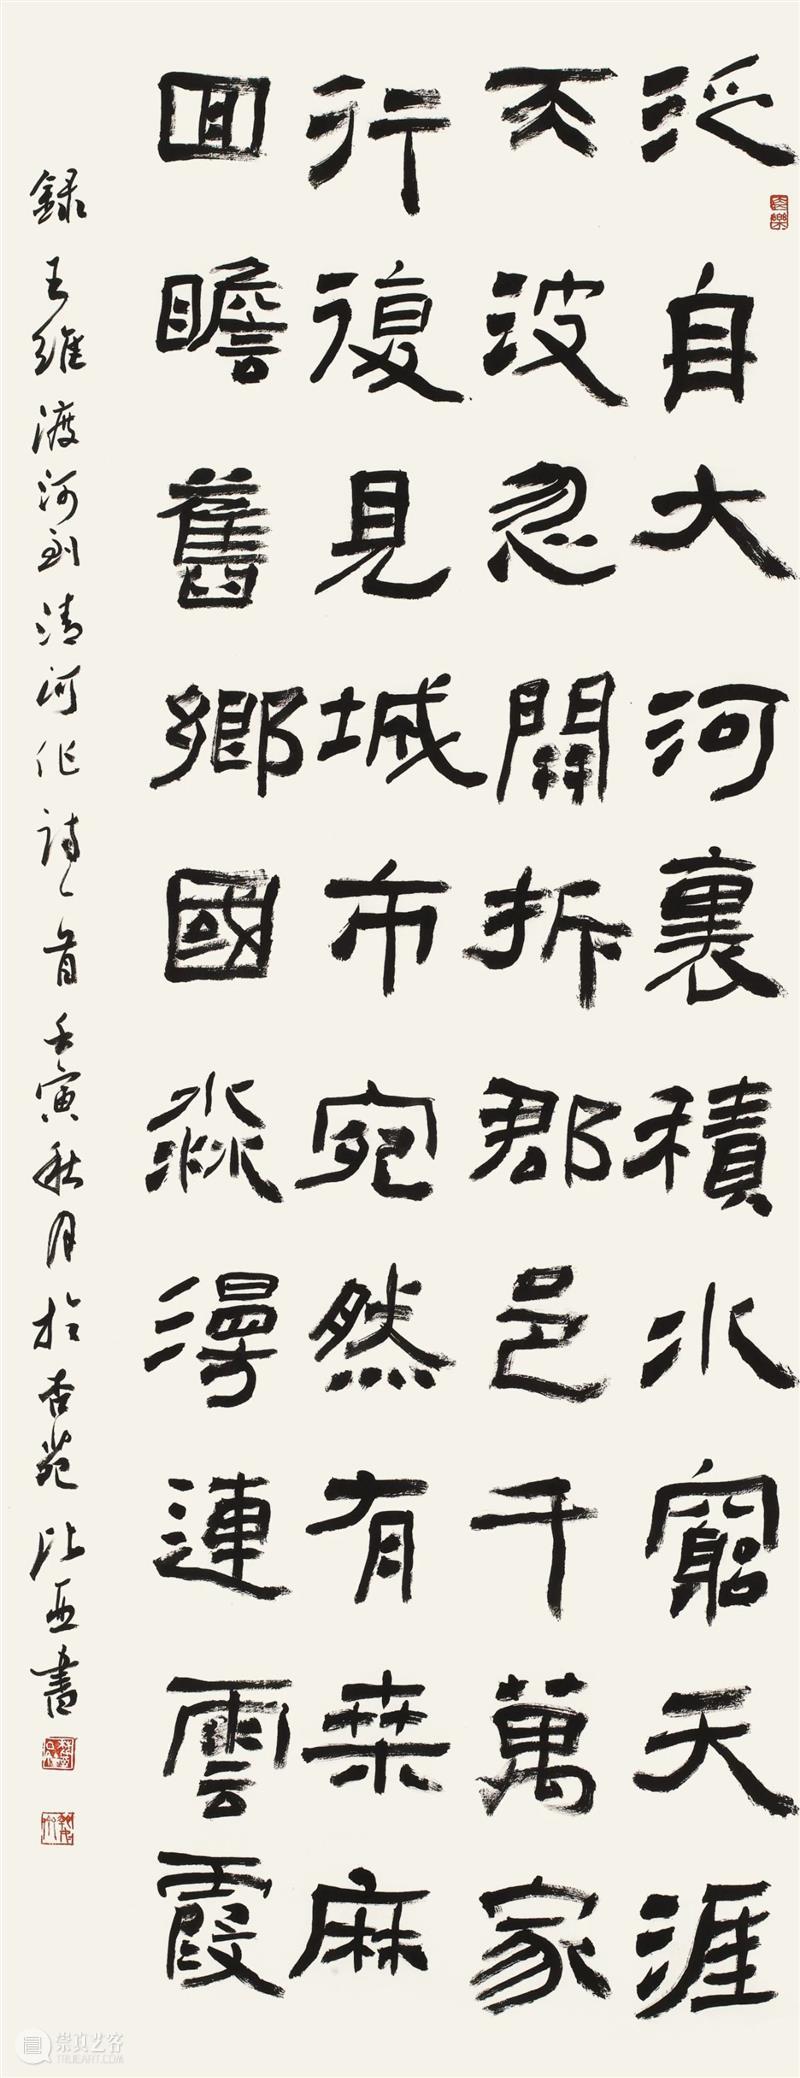 泛舟大河裏積水窮天涯
天波忽開拆郡邑千萬家
行復見城市宛然有桒麻
回瞻舊鄉國淼漫連雲霞
録王維渡河到清河作詩一首壬寅秋月於杏苑書
崇真艺客
TRUEART.COM